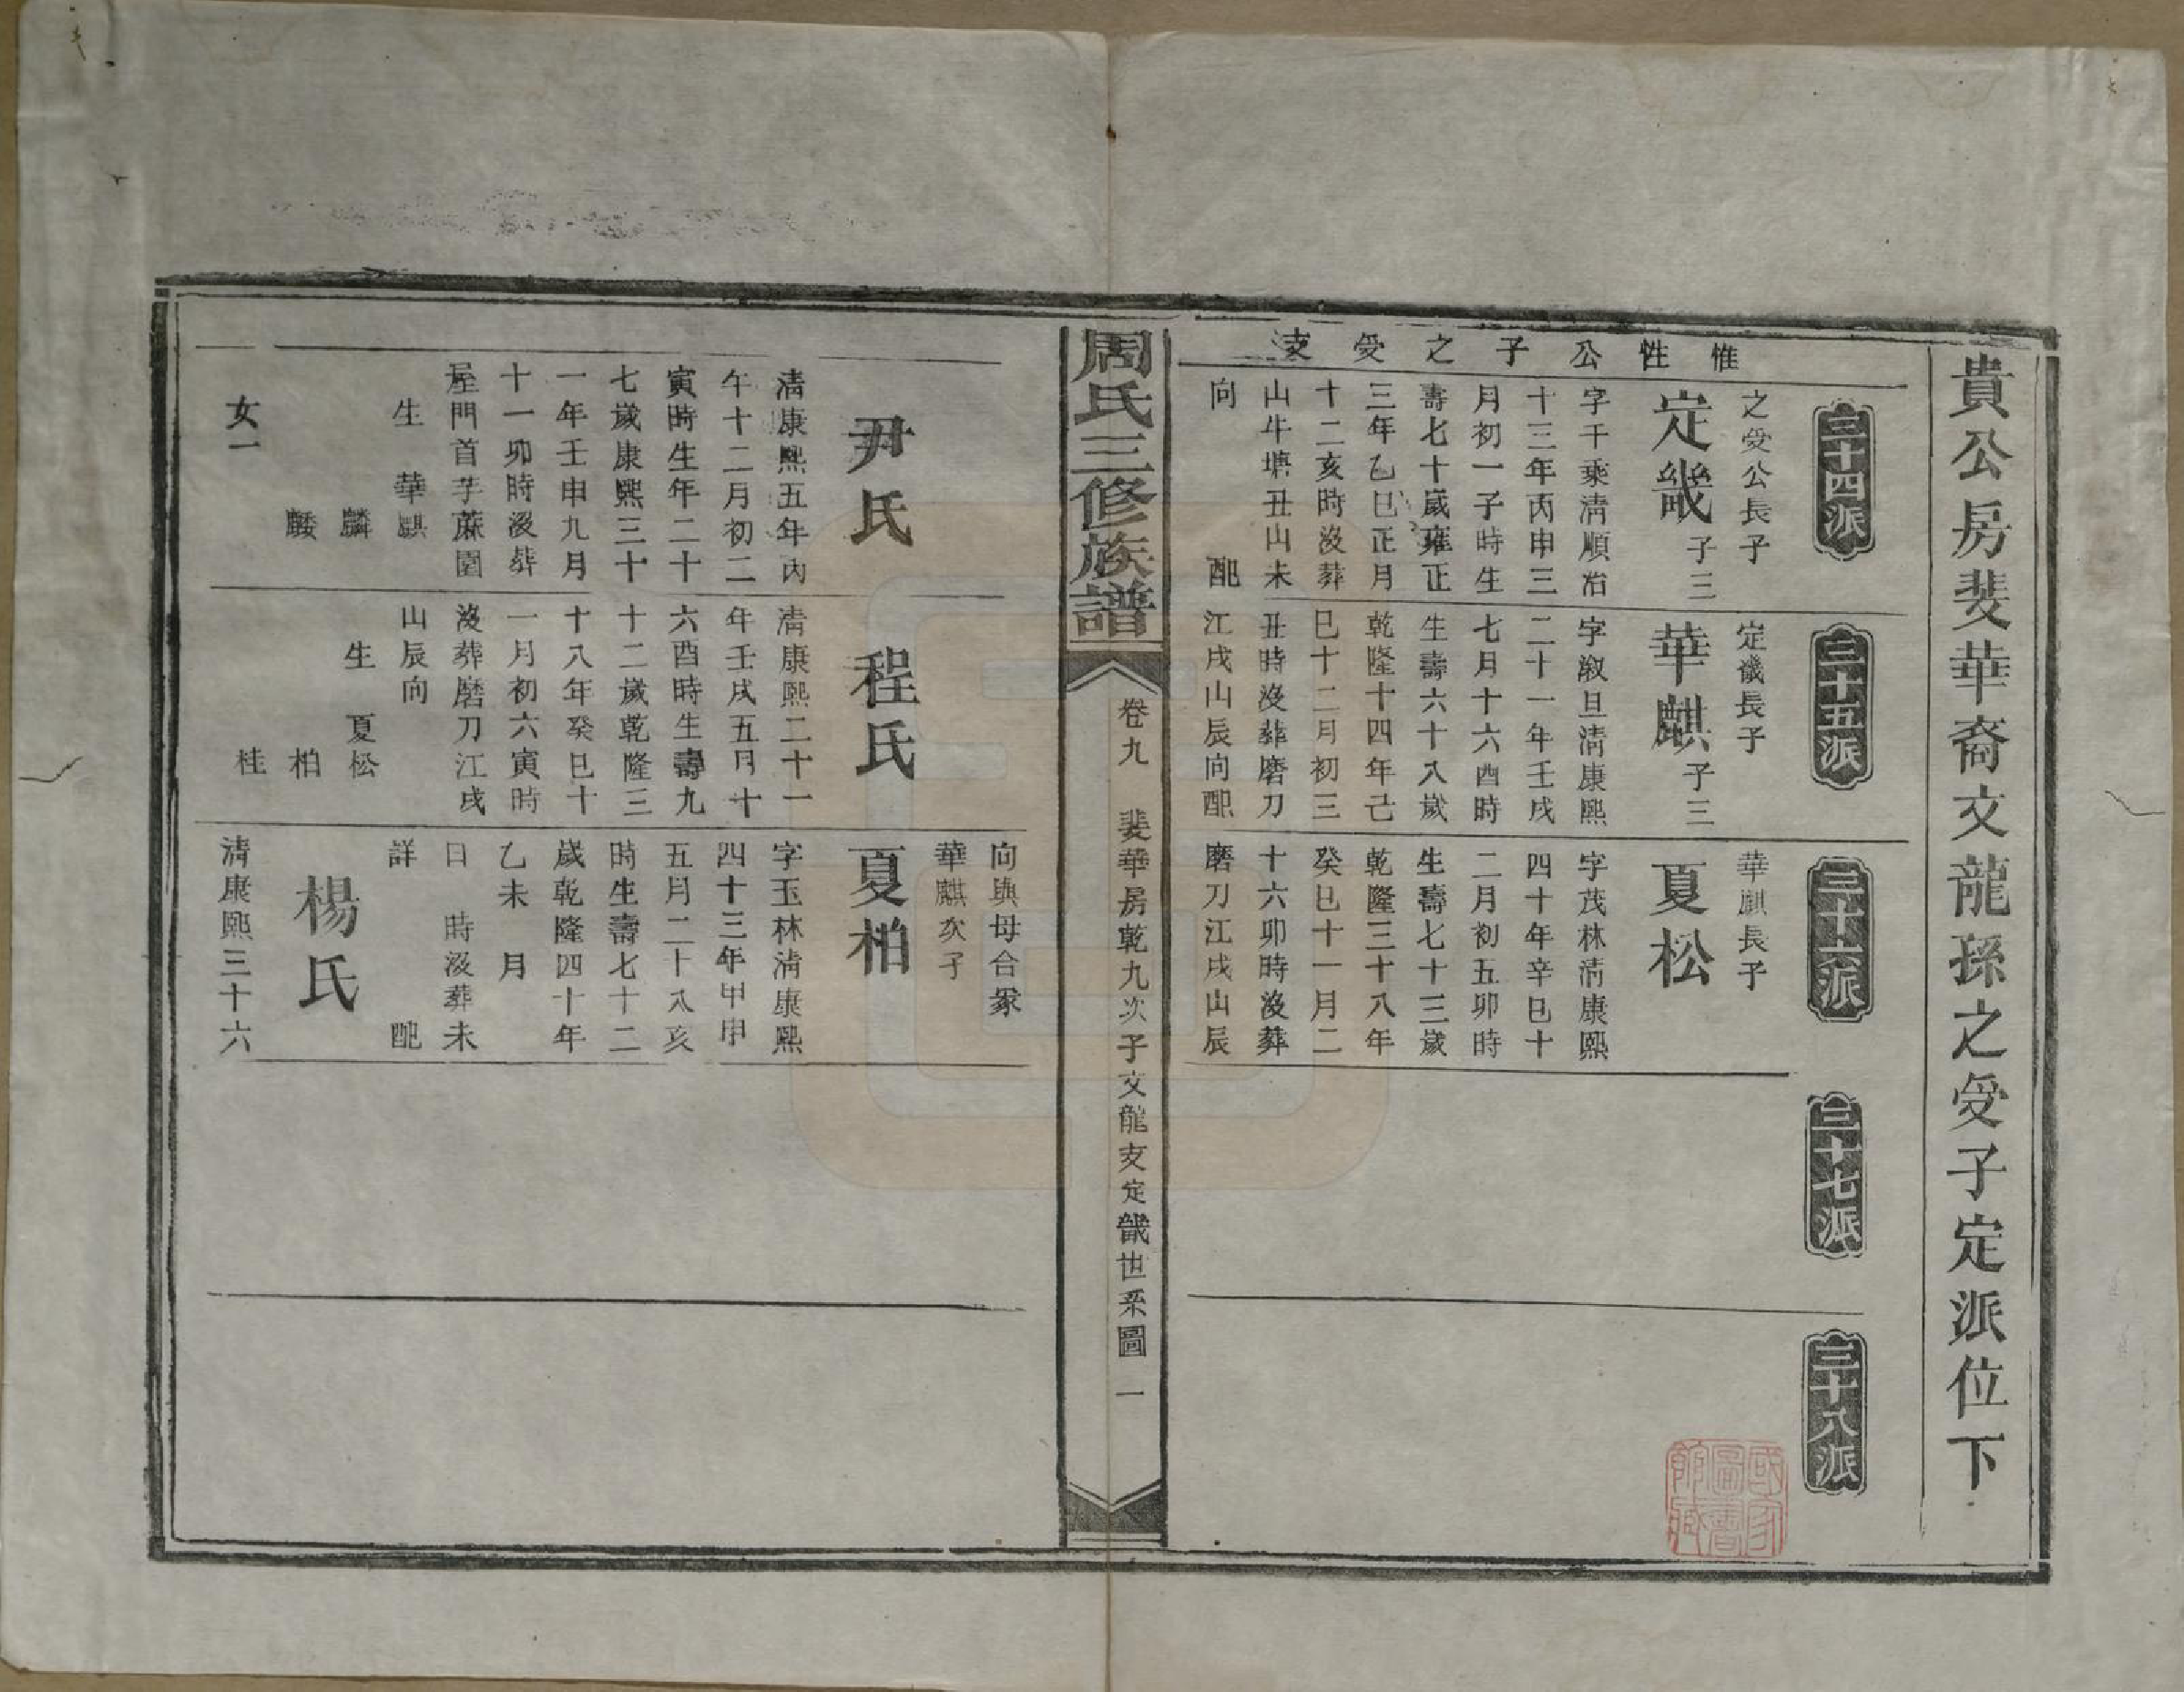 貴公房斐華裔文龍孫之受子定派位下
三十四派
三十五派
三十六派
三十七派
三十八派
惟性公子之受支
之受公長子
定畿子三
字千乘淸順治
十三年丙申三
月初一子時生
壽七十歲雍正
三年乙巳正月
十二亥時沒葬
山牛塘丑山未
向 配
定畿長子
華麒子三
字淑旦淸康熙
二十一年壬戌
七月十六酉時
生壽六十八歲
乾隆十四年己
巳十二月初三
丑時沒葬磨刀
江戌山辰向配
華麒長子
夏松
字茂林淸康熙
四十年辛巳十
二月初五卯時
生壽七十三歲
乾隆三十八年
癸巳十一月二
十六卯時沒葬
磨刀江戌山辰
周氏三修族譜
卷九 斐華房乾九次子文龍支定畿世系圖 一
尹氏
淸康熙五年丙
午十二月初二
寅時生年二十
七歲康熙三十
一年壬申九月
十一卯時沒葬
屋門首芋蔴園
生 華麒
麟
女一
程氏
淸康熙二十一
年壬戌五月十
六酉時生壽九
十二歲乾隆三
十八年癸巳十
一月初六寅時
沒葬磨刀江戌
山辰向
生 夏松
柏
桂
向與母合冢
華麒次子
夏柏
字玉林淸康熙
四十三年甲申
五月二十八亥
時生壽七十二
歲乾隆四十年
乙未 月
日 時沒葬未
詳 配
楊氏
淸康熙三十六
國家圖書館藏